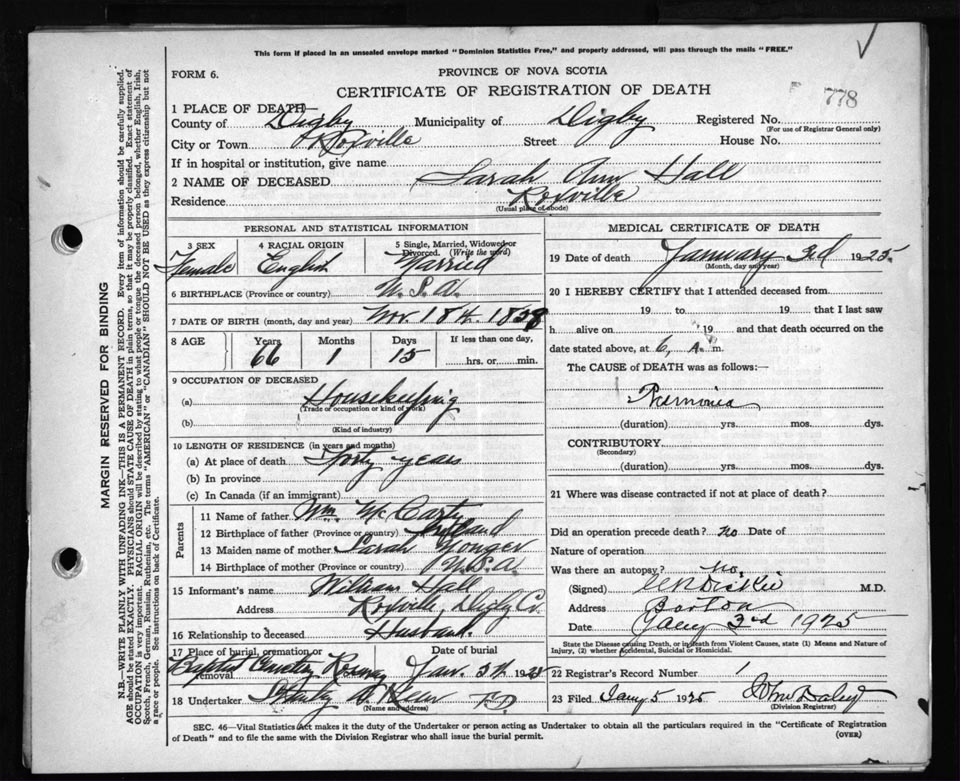 This form if placed in an unsealed envelope marked "Dominion Statistics Free," and properly addressed, will pass through the mails "FREE."
FORM 6.
PROVINCE OF NOVA SCOTIA
CERTIFICATE OF REGISTRATION OF DEATH
778
1 PLACE OF DEATH—
County of Digby Municipality of Digby Registered No.
(For use of Registrar General only)
City or Town Roxville Street House No.
If in hospital or institution, give name
2 NAME OF DECEASED Sarah Ann Hall
Residence Roxville
(Usual place of abode)
PERSONAL AND STATISTICAL INFORMATION
3 SEX 4 RACIAL ORIGIN 5 Single, Married, Widowed or Divorced. (Write the word)
Female English Married
6 BIRTHPLACE (Province or country) U.S.A.
7 DATE OF BIRTH (month, day and year) Nov. 18th 1858
8 AGE Years Months Days If less than one day,
66 1 15 hrs. or min.
9 OCCUPATION OF DECEASED
(a) Housekeeping
(Trade or occupation or kind of work)
(b)
(Kind of industry)
10 LENGTH OF RESIDENCE (in years and months)
(a) At place of death Forty years
(b) In province
(c) In Canada (if an immigrant)
Parents
11 Name of father Wm McCarty
12 Birthplace of father (Province or country)
13 Maiden name of mother Sarah
14 Birthplace of mother (Province or country) U.S.A.
15 Informant's name William Hall
Address Roxville, Digby Co.
16 Relationship to deceased Husband.
17 Place of burial, cremation or removal Date of burial
Baptist Jan. 5th 1925
18 Undertaker
(Name and address)
MEDICAL CERTIFICATE OF DEATH
19 Date of death January 3d 1925.
(Month, day and year)
20 I HEREBY CERTIFY that I attended deceased from
19 to 19 that I last saw
h alive on 19 and that death occurred on
date stated above, at 6, A. m.
The CAUSE of DEATH was as follows:—
(duration) yrs. mos. dys.
CONTRIBUTORY.
(Secondary)
(duration) yrs. mos. dys.
21 Where was disease contracted if not at place of death?
Did an operation precede death? no Date of
Nature of operation
Was there an autopsy? no.
(Signed) M.D.
Address Barton
Date Jany 3rd 1925
State the Disease causing Death, or in death from Violent Causes, state (1) Means and Nature of Injury, (2) whether Accidental, Suicidal or Homicidal.
22 Registrar's Record Number 1
23 Filed Jany 5 1925
(Division Registrar)
SEC. 46—Vital Statistics Act makes it the duty of the Undertaker or person acting as Undertaker to obtain all the particulars required in the "Certificate of Registration
of Death" and to file the same with the Division Registrar who shall issue the burial permit.
(OVER)
MARGIN RESERVED FOR BINDING
N.B.—WRITE PLAINLY WITH UNFADING INK—THIS IS A PERMANENT RECORD. Every item of information should be carefully supplied.
AGE should be stated EXACTLY. PHYSICIANS should STATE CAUSE OF DEATH in plain terms, so that it may be properly classified. Exact statement of
OCCUPATION is very important. RACIAL ORIGIN will be described by stating to what people or tongue the deceased person belonged, whether English, Irish,
Scotch, French, German, Russian, Ruthenian, etc. The terms "AMERICAN" or "CANADIAN" SHOULD NOT BE USED as they express citizenship but not
a race or people. See instructions on back of Certificate.